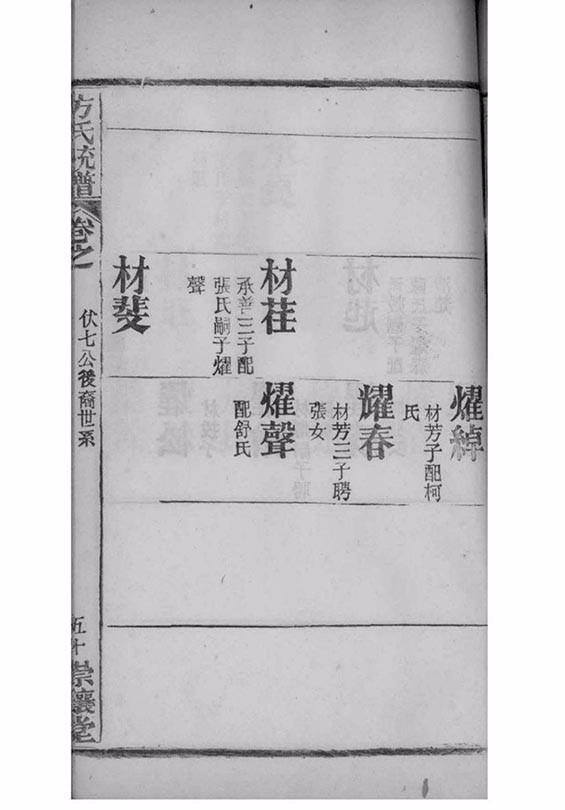 材荏
承善三子配
張氏嗣子燿
聲
材斐
燿綽
材芳子配柯
氏
燿春
材芳三子聘
張女
燿聲
配舒氏
方氏統譜
卷之
伏七公後裔世系
五十
崇讓堂